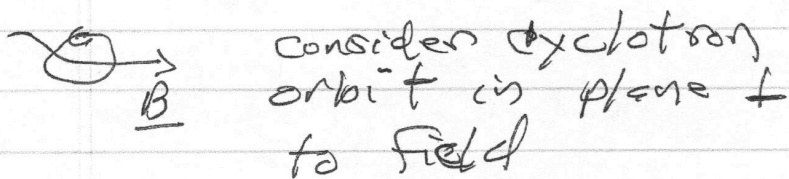 consider cyclotron
B orbit in plane ⊥
to field